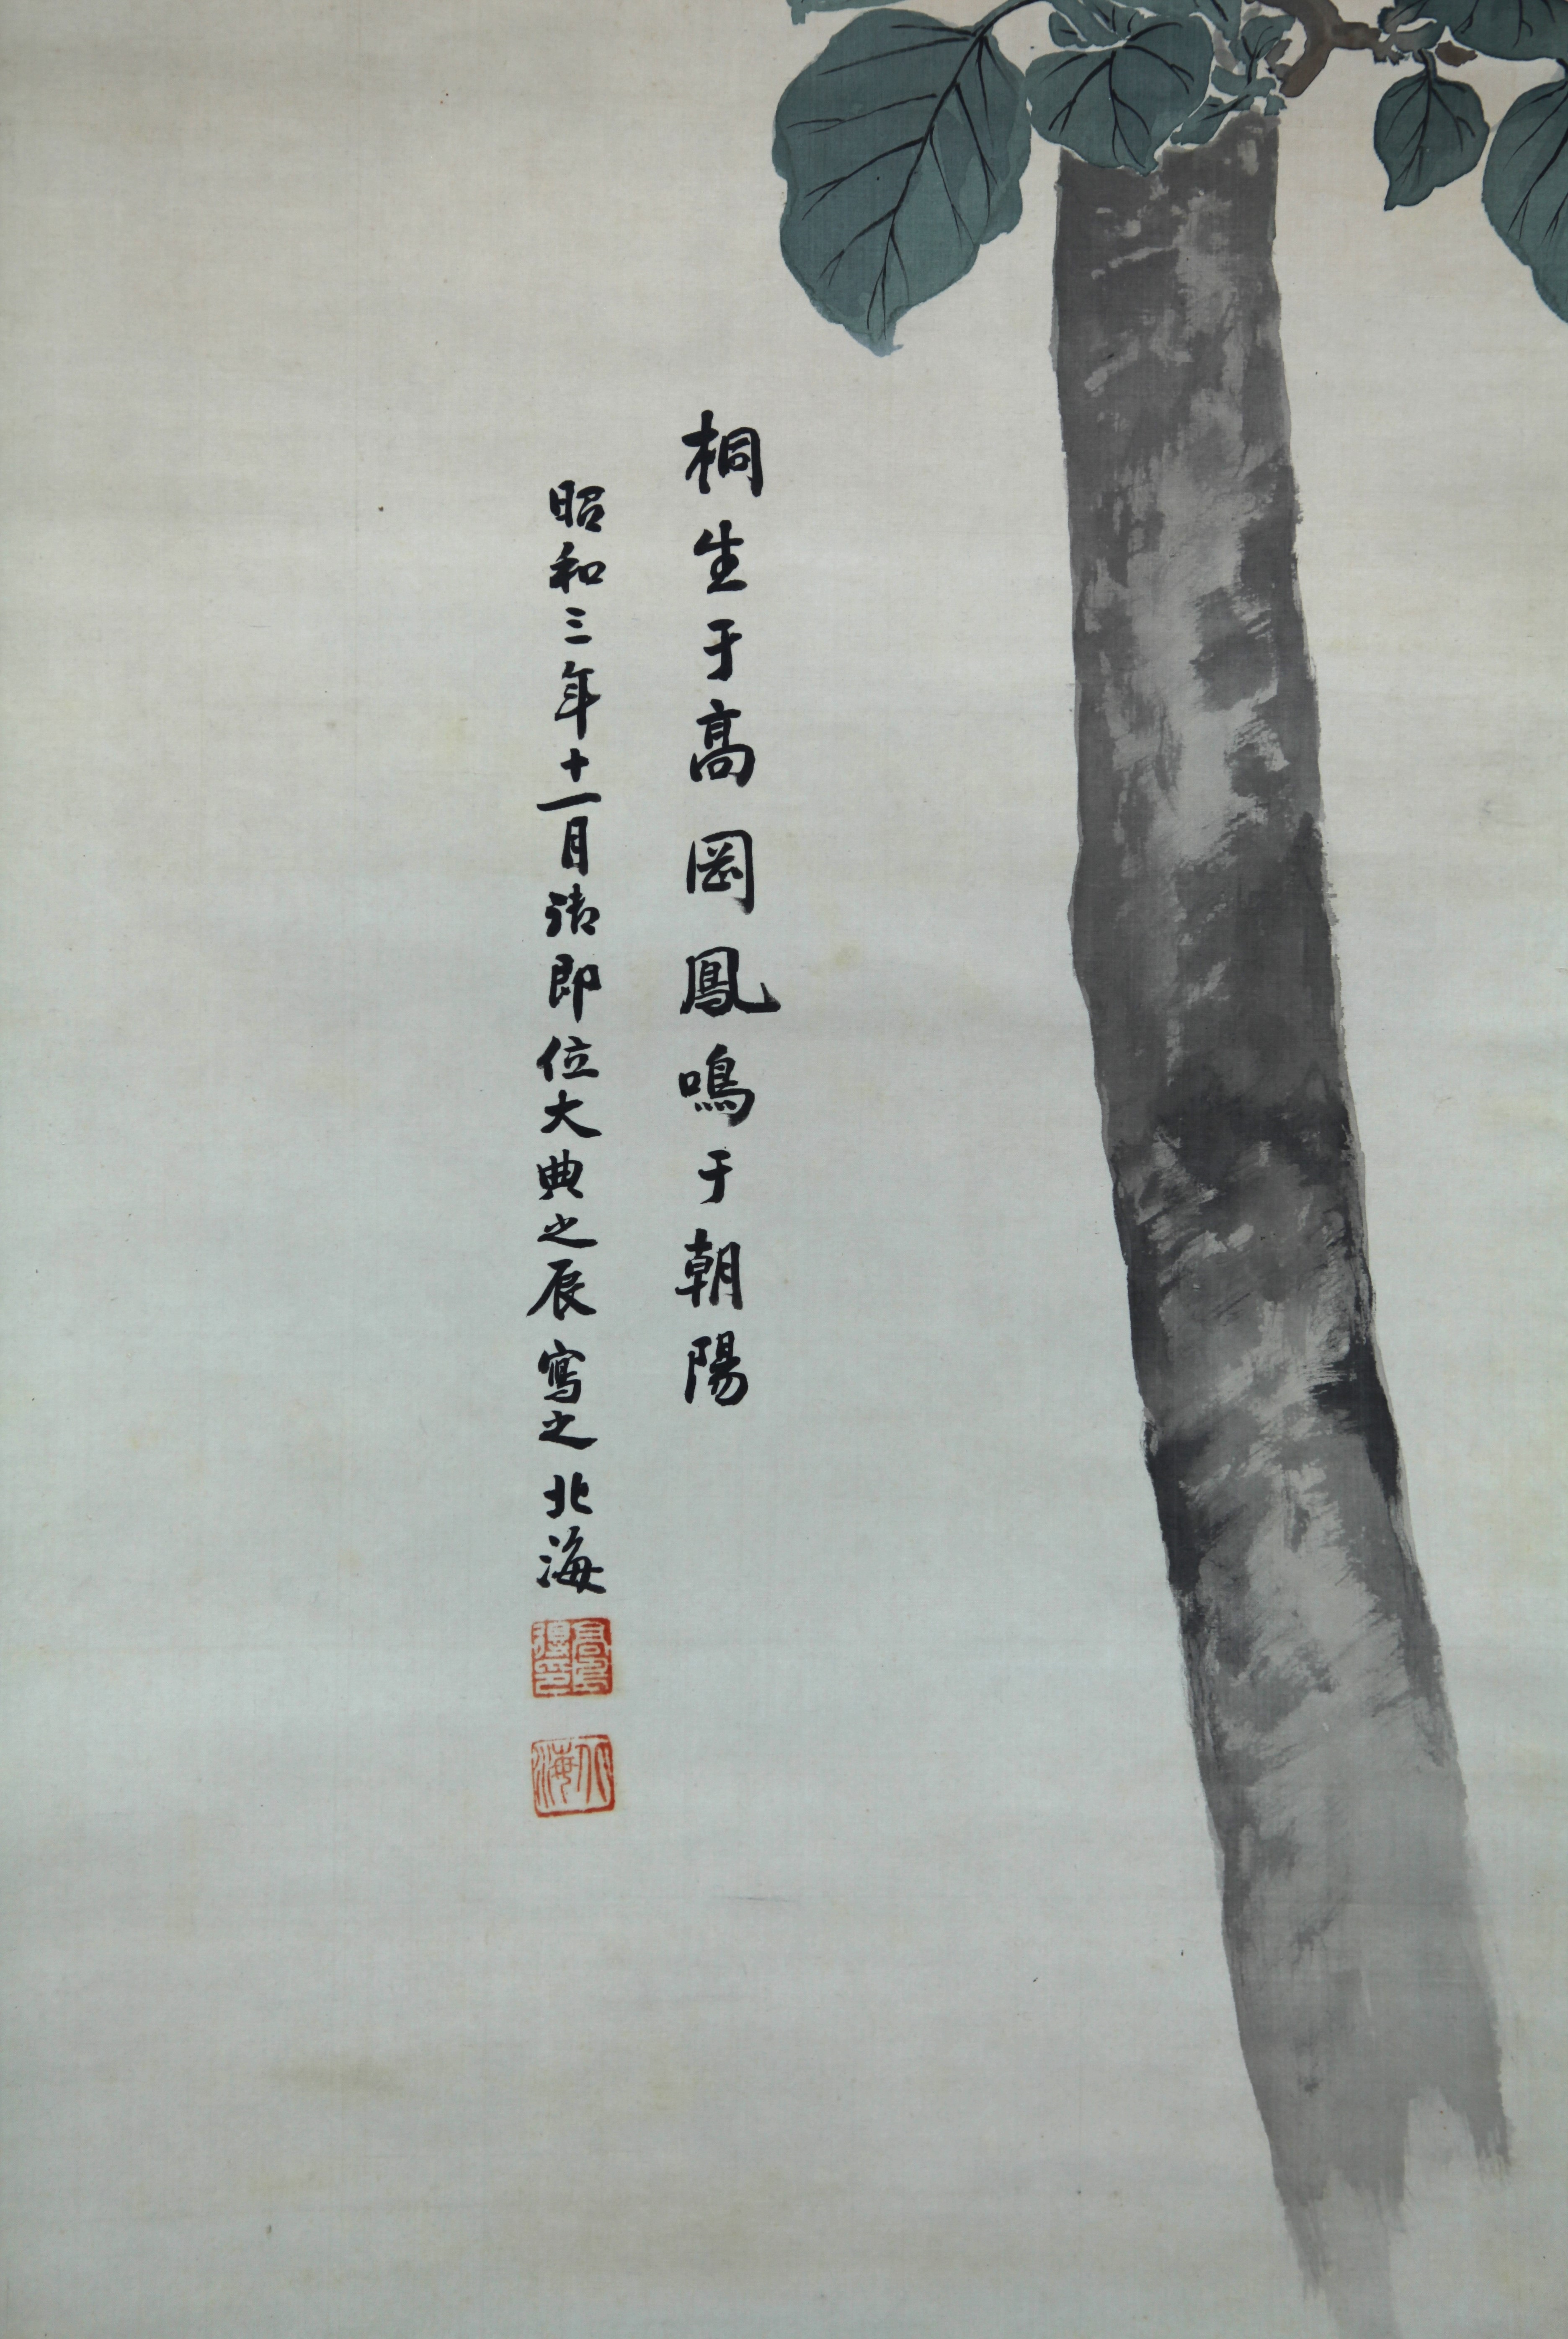 桐生于高岡鳳鳴于朝陽
昭和三年十一月御即位大典之辰寫之北海
高島得印
北海